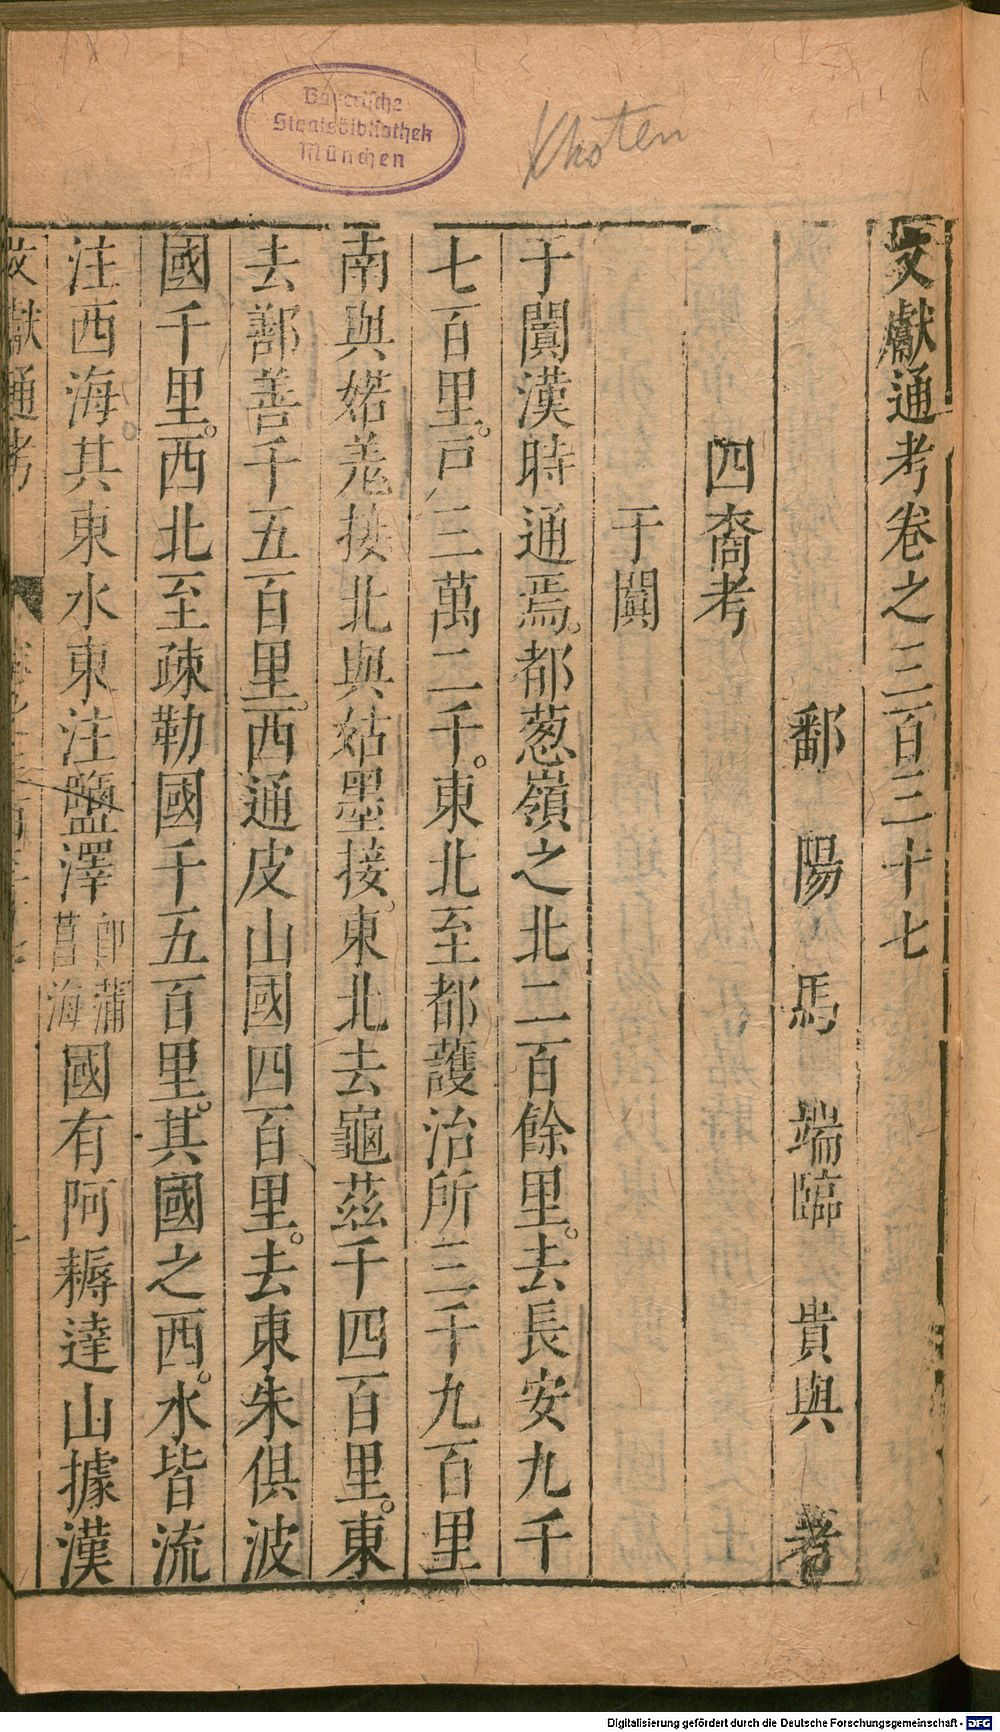 Bayerische
Staatsbibliothek
München
Khoten
文獻通考卷之三百三十七
鄱陽馬端臨貴與考
四裔考
于闐
于闐漢時通焉。都葱嶺之北二百餘里。去長安九千
七百里。戸三萬二千。東北至都護治所三千九百里
南與婼羌接北與姑墨接。東北去龜茲千四百里。東
去鄯善千五百里。西通皮山國四百里。去東朱俱波
國千里。西北至疎勒國千五百里。其國之西。水皆流
注西海。其東水東注鹽澤即蒲菖海國有阿耨達山據漢
文獻通考
Digitalisierung gefördert durch die Deutsche Forschungsgemeinschaft - DFG